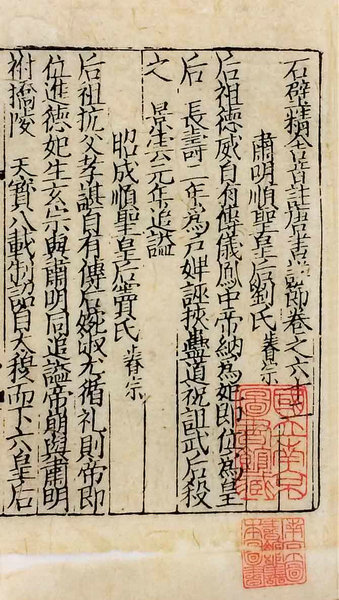 石壁精舍音註唐書詳節卷之六十一
肅明順聖皇后劉氏 睿宗
后祖德威自有傳儀鳳中帝納爲妃即位爲皇
后 長壽二年爲戶婢誣挾蠱道祝詛武后殺
之 景雲元年追謚
昭成順聖皇后竇氏 睿宗
后祖抗父孝諶自有傳后婉淑尤循礼則帝即
位進德妃生玄宗與肅明同追謚帝崩與肅明
祔橋陵 天寶八載制詔自太穆而下六皇后